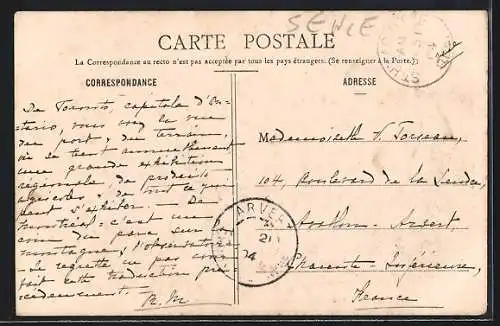 SEINE
CARTE POSTALE
La Correspondance au recto n'est pas acceptée par tous les pays étrangers. (Se renseigner à la Poste.)
CORRESPONDANCE
ADRESSE
De Toronto, capitale d'On-
tario, vous avez la vue
du port, du terrain,
où se tient annuellement
une grande exhibition
régionale, de produits
agricoles, de tout ce qui
peut s'exhiber. — De
Montréal: c'est un
coin du parc sur la
montagne, l'observatoire
— Je regrette ne pas com-
fait cette traduction pré-
cédemment.
Mademoiselle
104, Boulevard de la
Arvert,
Charente-Inférieure,
France
ARVERT